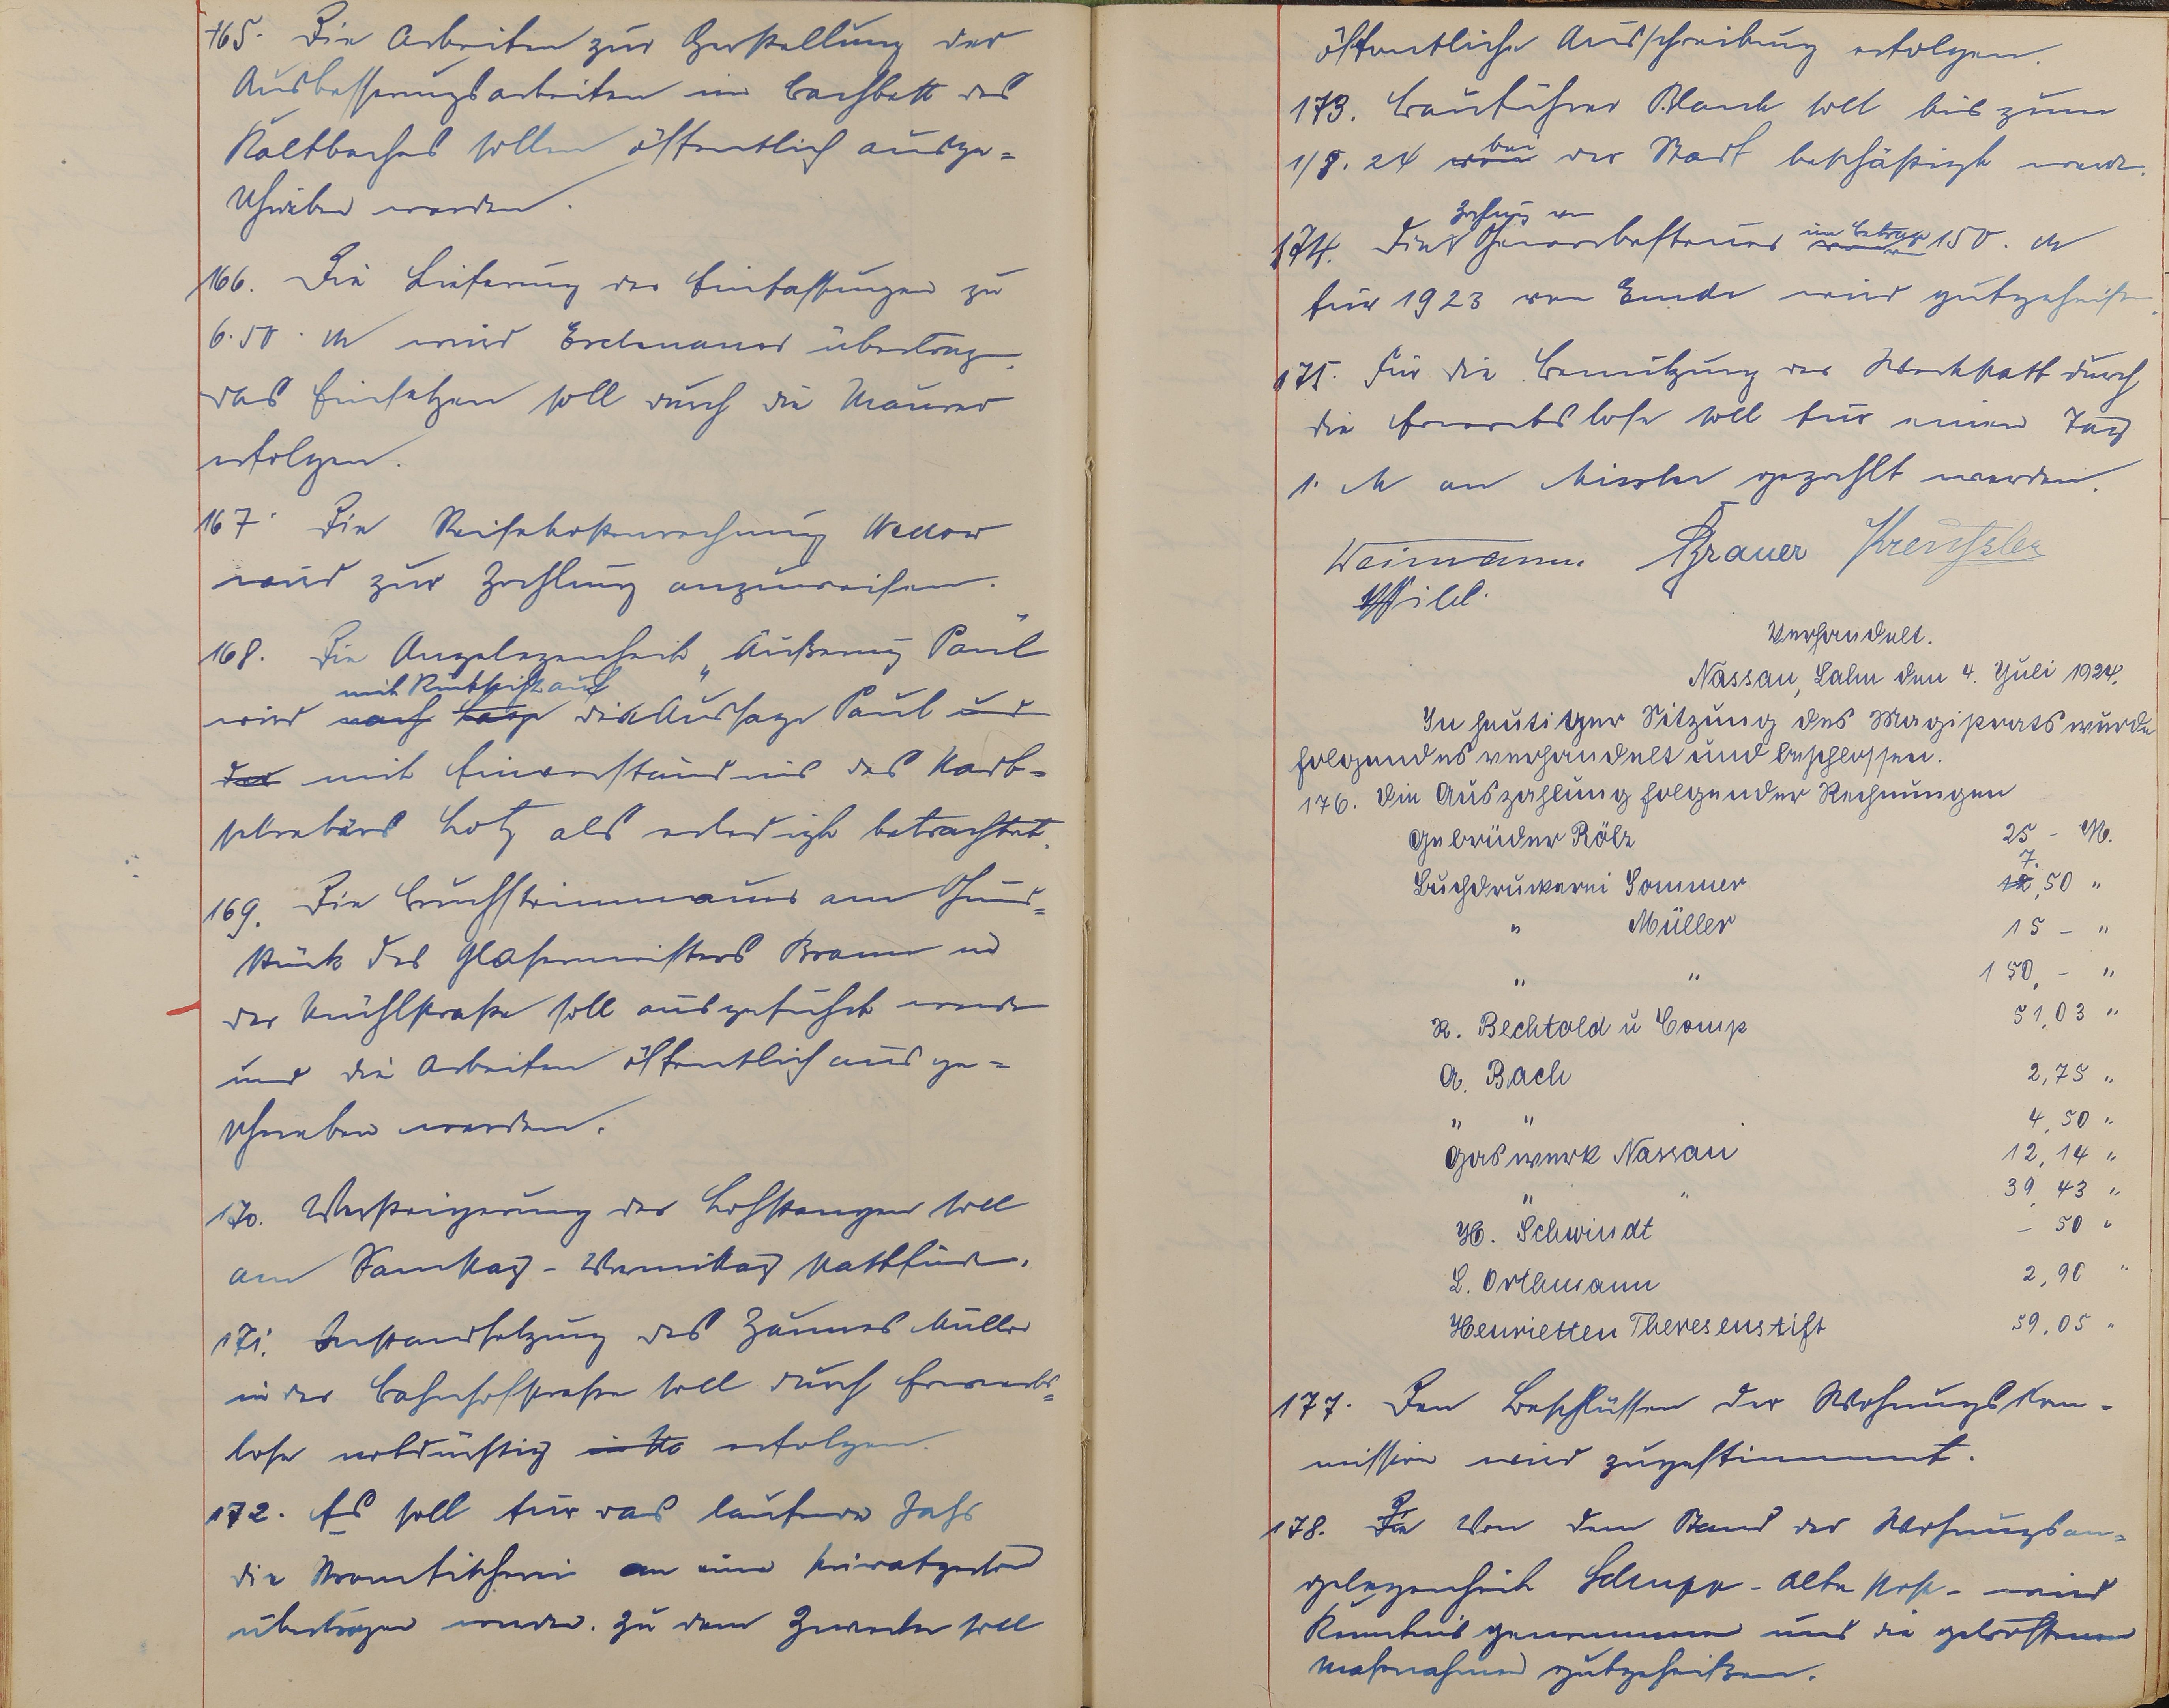 165. Die Arbeiten zur Herstellung der
Ausbesserungsarbeiten im Bachbett des
Kaltbaches sollen öffentlich ausge-
schrieben werden.
166. Die Lieferung der Einfassungen zu
6.50 M wird übertragen.
das Einsetzen soll durch die Maurer
erfolgen.
167. Die Reisekostenrechnung
wird zur Zahlung anzuweisen.
168. Die Angelegenheit „Äußerung Paul
mit Rücksicht auf
wird nach die Aussage Paul und
der mit Einverständnis des
sekretärs Lotz als erledigt betrachtet.
169. Die Bruchsteinmauer am Grund-
stück des Glasermeisters Braun in
der Mühlstraße soll ausgeführt werden
und die Arbeiten öffentlich ausge-
schrieben werden.
170. Versteigerung der Lohstangen soll
am Samstag-Vormittag stattfinden.
171. Instandsetzung des Zaunes Müller
in der Bahnhofstraße soll durch Erwerbs-
lose notdürftig erfolgen.
172. Es soll für das laufende Jahr
die Stromfischerei an eine
übertragen werden. Zu dem Zwecke soll
öffentliche Ausschreibung erfolgen.
173. Bauführer Blank soll bis zum
bei
1/8. 24 von der Stadt beschäftigt werden.
174. Die Gewerbesteuer im Betrage 150. M
für 1923 von wird gutgeheißen.
175. Für die Benutzung der Werkstatt durch
die Erwerbslose soll für einen Tag
1. M an gezahlt werden.
Weimann. Brauer
Verhandelt.
Nassau, Lahn den 4. Juli 1924.
In heutitger Sitzung des Magistrats wurde
folgendes verhandelt und beschlossen.
176. Die Auszahlung folgender Rechnungen
Gebrüder Rölz 25 - M.
7.
Buchdruckerei Sommer 12,50 "
" Müller 15 - "
" " 150,- "
R. Bechtold u Comp 51,03 "
A. Bach 2,75 "
" " 4,50 "
Gaswerk Nassau 12,14 "
" " 39,43 "
H. Schwindt - 50 "
L. Orthmann 2,90 "
Henrietten Theresenstift 59,05 "
177. Den Beschlüssen der Wohnungskom-
mission wird zugestimmt.
178. Die Von dem Stand der Wohnungsan-
gelegenheit Schupp - alte Post - wird
Kenntnis genommen und die getroffenen
Maßnahmen gutgeheißen.